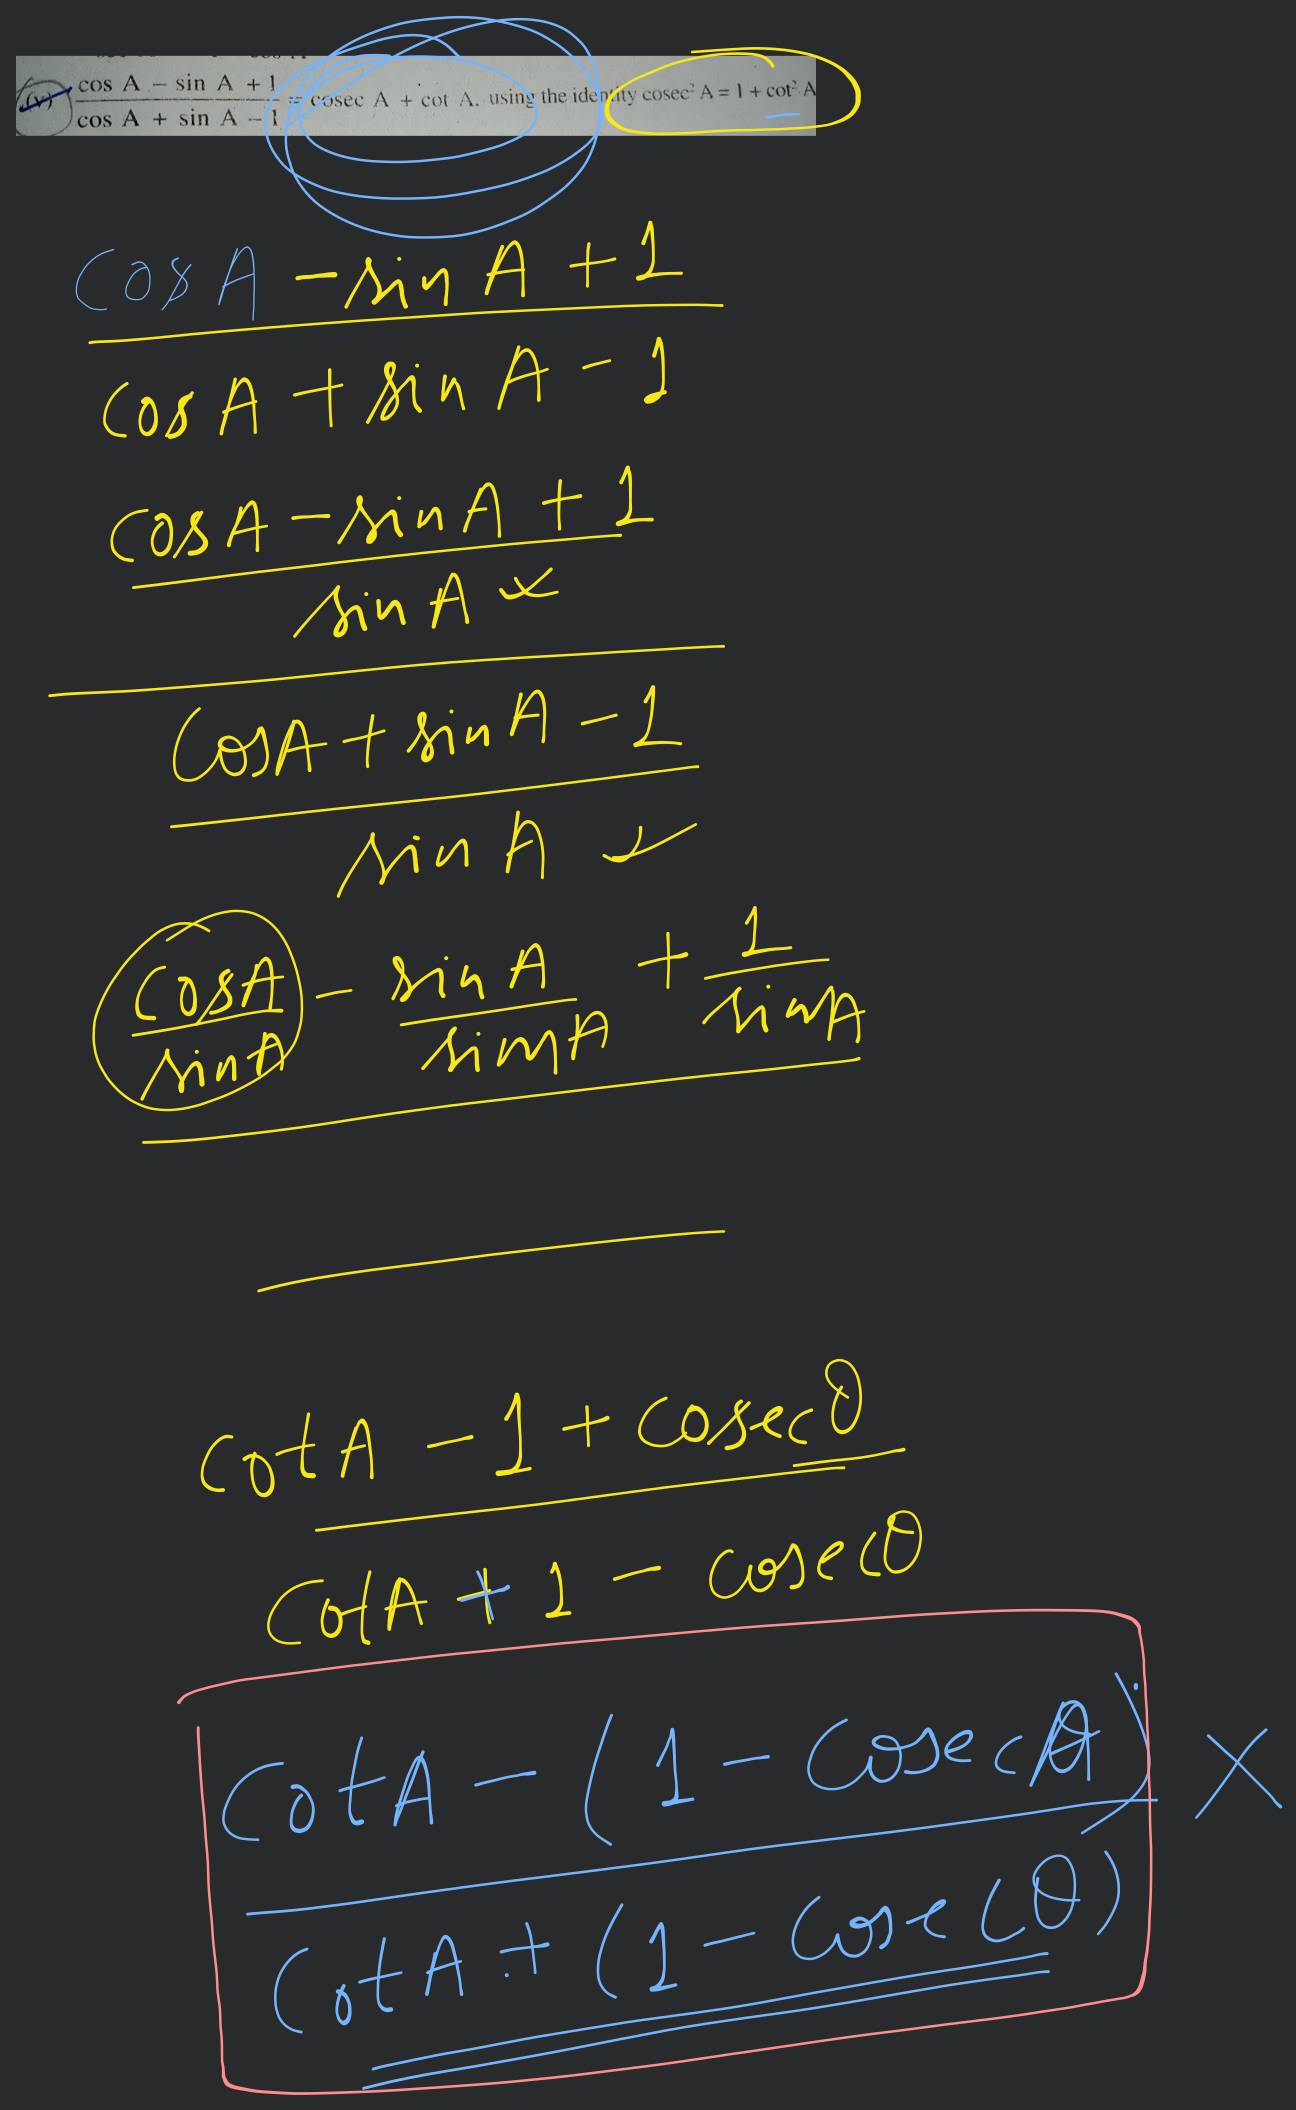 (v) cos A − sin A + 1 / cos A + sin A − 1 = cosec A + cot A, using the identity cosec² A = 1 + cot² A
cos A − sin A + 1
cos A + sin A − 1
cos A − sin A + 1
sin A
cos A + sin A − 1
sin A
cos A / sin A − sin A / sin A + 1 / sin A
cot A − 1 + cosec θ
cot A + 1 − cosec θ
cot A − (1 − cosec A) ×
cot A + (1 − cosec θ)